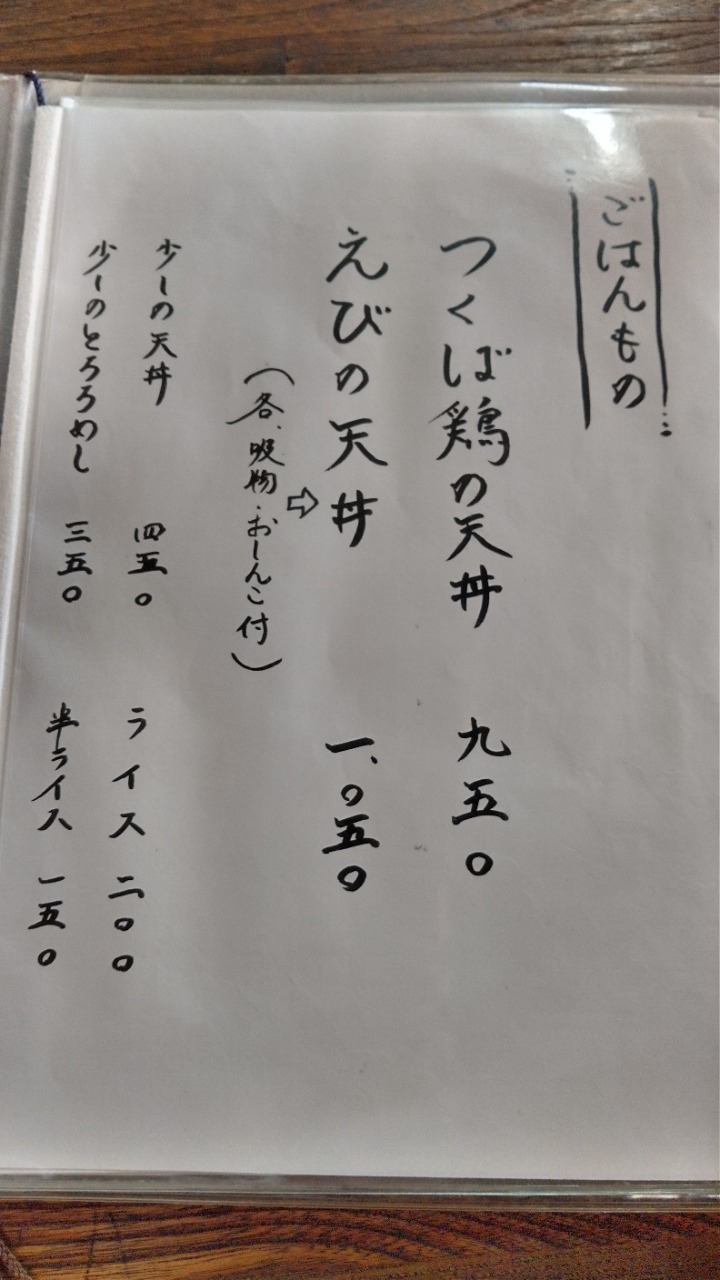 ごはんもの
つくば鶏の天丼 九五〇
えびの天丼 一、〇五〇
⇨
(各、吸物・おしんこ付)
少しの天丼 四五〇
少しのとろろめし 三五〇
ライス 二〇〇
半ライス 一五〇